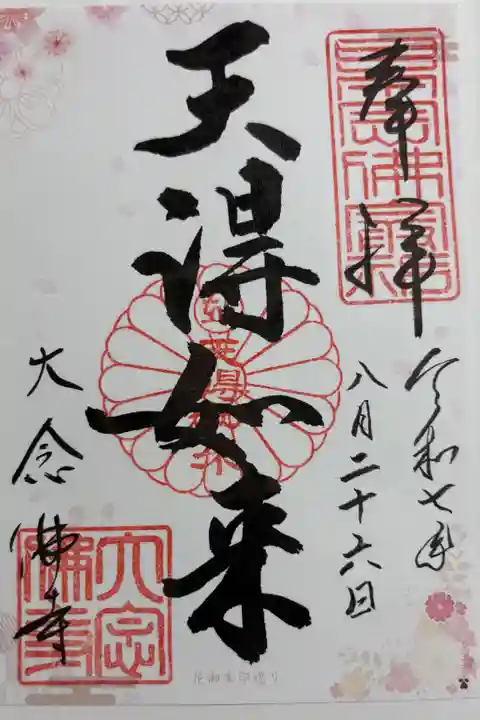 奉拝
令和七年
八月二十六日
天得如来
大念佛寺
大念佛寺